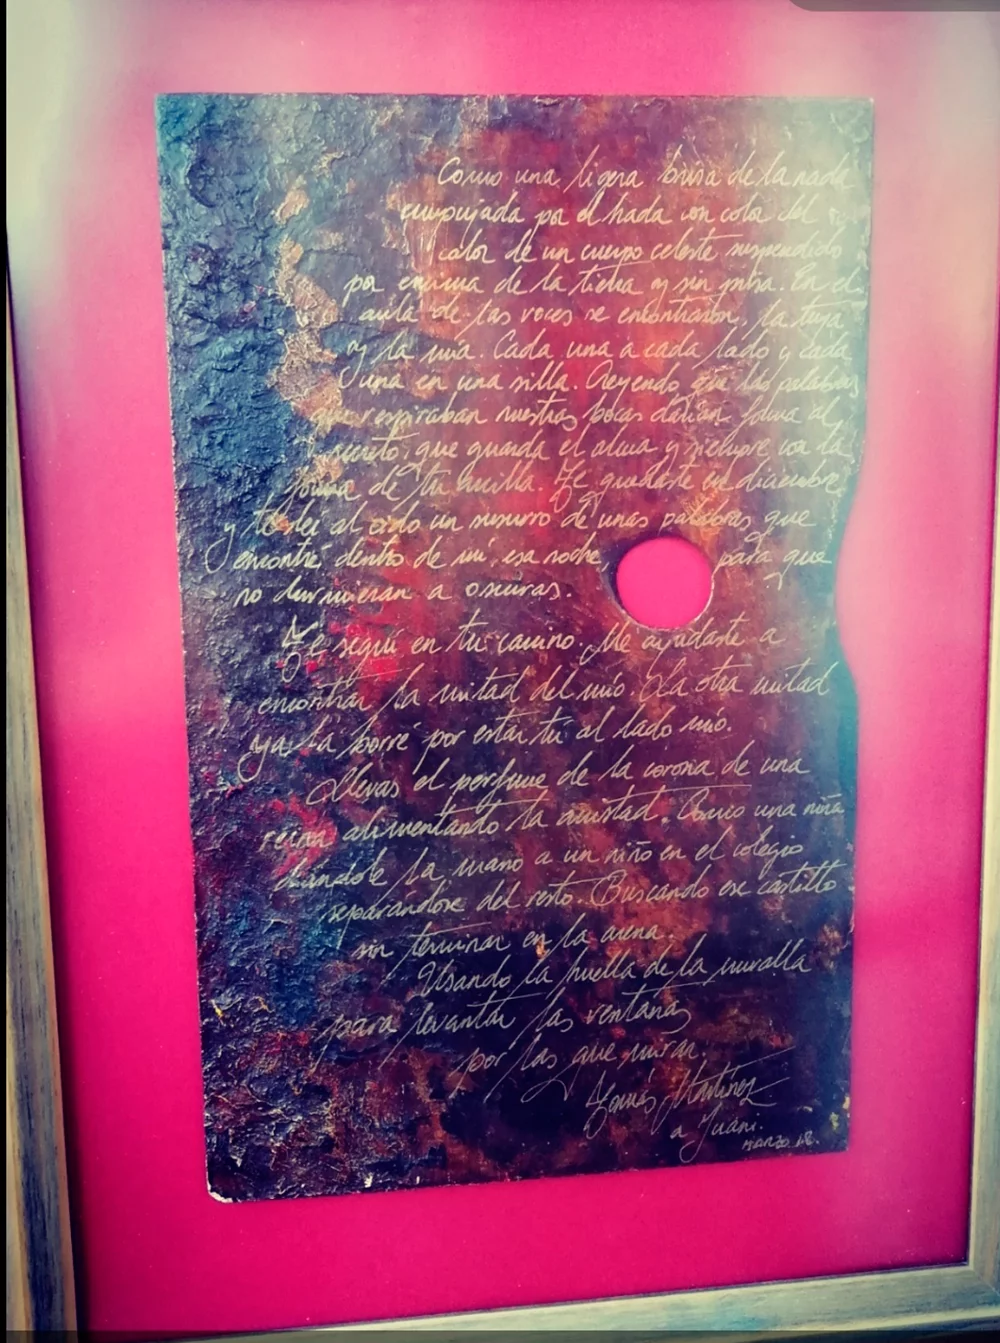 Como una ligera brisa de la nada
empujada por el hada con color del
calor de un cuerpo celeste suspendido
por encima de la tierra y sin prisa. En el
aula de las voces se encontraron, la tuya
y la mía. Cada una a cada lado y cada
una en una silla. Creyendo que las palabras
que respiraban nuestras bocas darían forma al
secreto que guarda el alma y siempre con la
forma de tu
Te quedaste en diciembre
y te leí al oído un susurro de unas palabras que
encontré dentro de mí, esa noche, para que
no durmieran a oscuras.
Te seguí en tu camino. Me ayudaste a
encontrar la mitad del mío. La otra mitad
ya la borré por estar tú al lado mío.
Llevas el perfume de la corona de una
reina alimentando la amistad. Como una niña
dándole la mano a un niño en el colegio
separándose del resto. Buscando ese castillo
sin terminar en la arena.
Usando la huella de la muralla
para levantar las ventanas
por las que miran.
Tomás Martínez
a Juani.
MARZO 18.